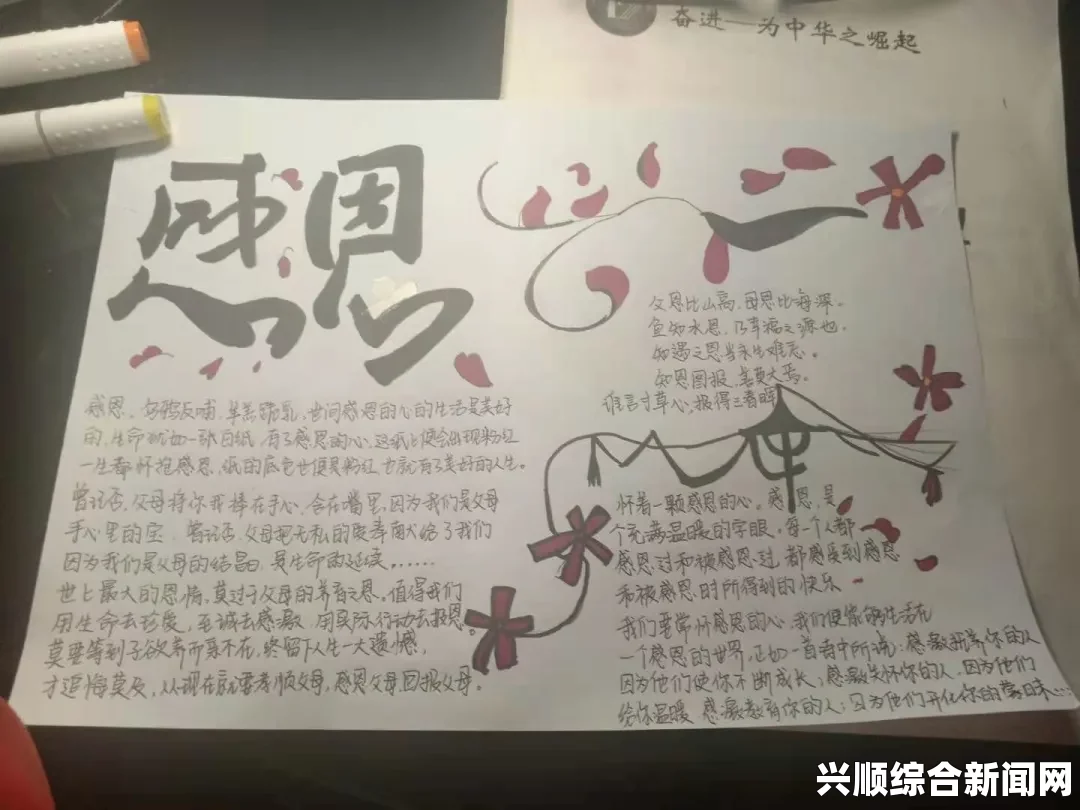 奋进——为中华之崛起
感恩
父恩比山高，母恩比海深。
鱼知水恩，乃幸福之源也。
知遇之恩当永生难忘。
知恩图报，善莫大焉。
谁言寸草心，报得三春晖
感恩、乌鸦反哺，羊羔跪乳，世间感恩的心的生活是美好
的，生命就如一张白纸，有了感恩的心，这纸上便会出现粉红
一生都怀抱感恩，纸的底色也便是粉红，也就有了美好的人生。
曾记否，父母将你我捧在手心，含在嘴里，因为我们是父母
手心里的宝，曾记否，父母把无私的爱奉献给了我们
因为我们是父母的结晶，是生命的延续，......
世上最大的恩情，莫过于父母的养育之恩，值得我们
用生命去珍爱，至诚去感激，用实际行动去报恩。
莫要等到子欲养而亲不在，终留下人生一大遗憾，
才追悔莫及，从现在就要孝顺父母，感恩父母，回报父母。
怀着一颗感恩的心。感恩，是
个充满温暖的字眼，每一个人都
感恩过和被感恩过，都感受到感恩
和被感恩时所得到的快乐
我们要常怀感恩的心，我们便能够生活在
一个感恩的世界，正如一首诗中所说：感激抚养你的人
因为他们使你不断成长；感激关怀你的人，因为他们
给你温暖 感激教育你的人；因为他们开化你的蒙昧...
兴顺综合新闻网